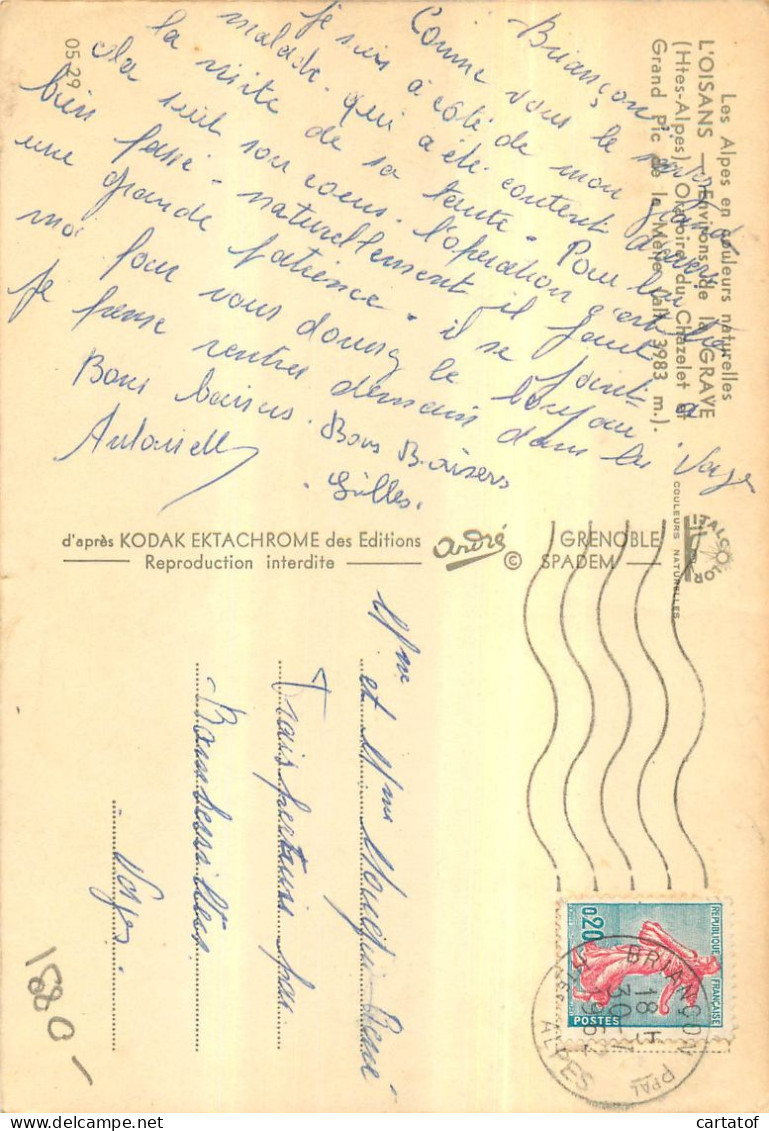 Les Alpes en couleurs naturelles
L'OISANS — Environs de la GRAVE
(Htes-Alpes) Oratoire du Chazelet et
Grand Pic de la Meije (alt. 3983 m.).
05.29
Briançon
Comme vous le
je suis à côté de mon
malade. qui a été content
la visite de sa tante. Pour
cela suit son cours. l'opération c'est
bien passé - naturellement il faut
une grande patience. il se joint à
moi pour vous donner le bonjour.
Je pense rentrer demain dans les Vosges
Bons baisers. Bons Baisers
Gilles.
d'après KODAK EKTACHROME des Editions andré GRENOBLE
Reproduction interdite © SPADEM
ITALCOLOR
COULEURS NATURELLES
et Mme
par
Vosges.
REPUBLIQUE FRANÇAISE
0,20
POSTES
BRIANÇON PPAL
18 H
30-
ALPES
1880-
cartatof